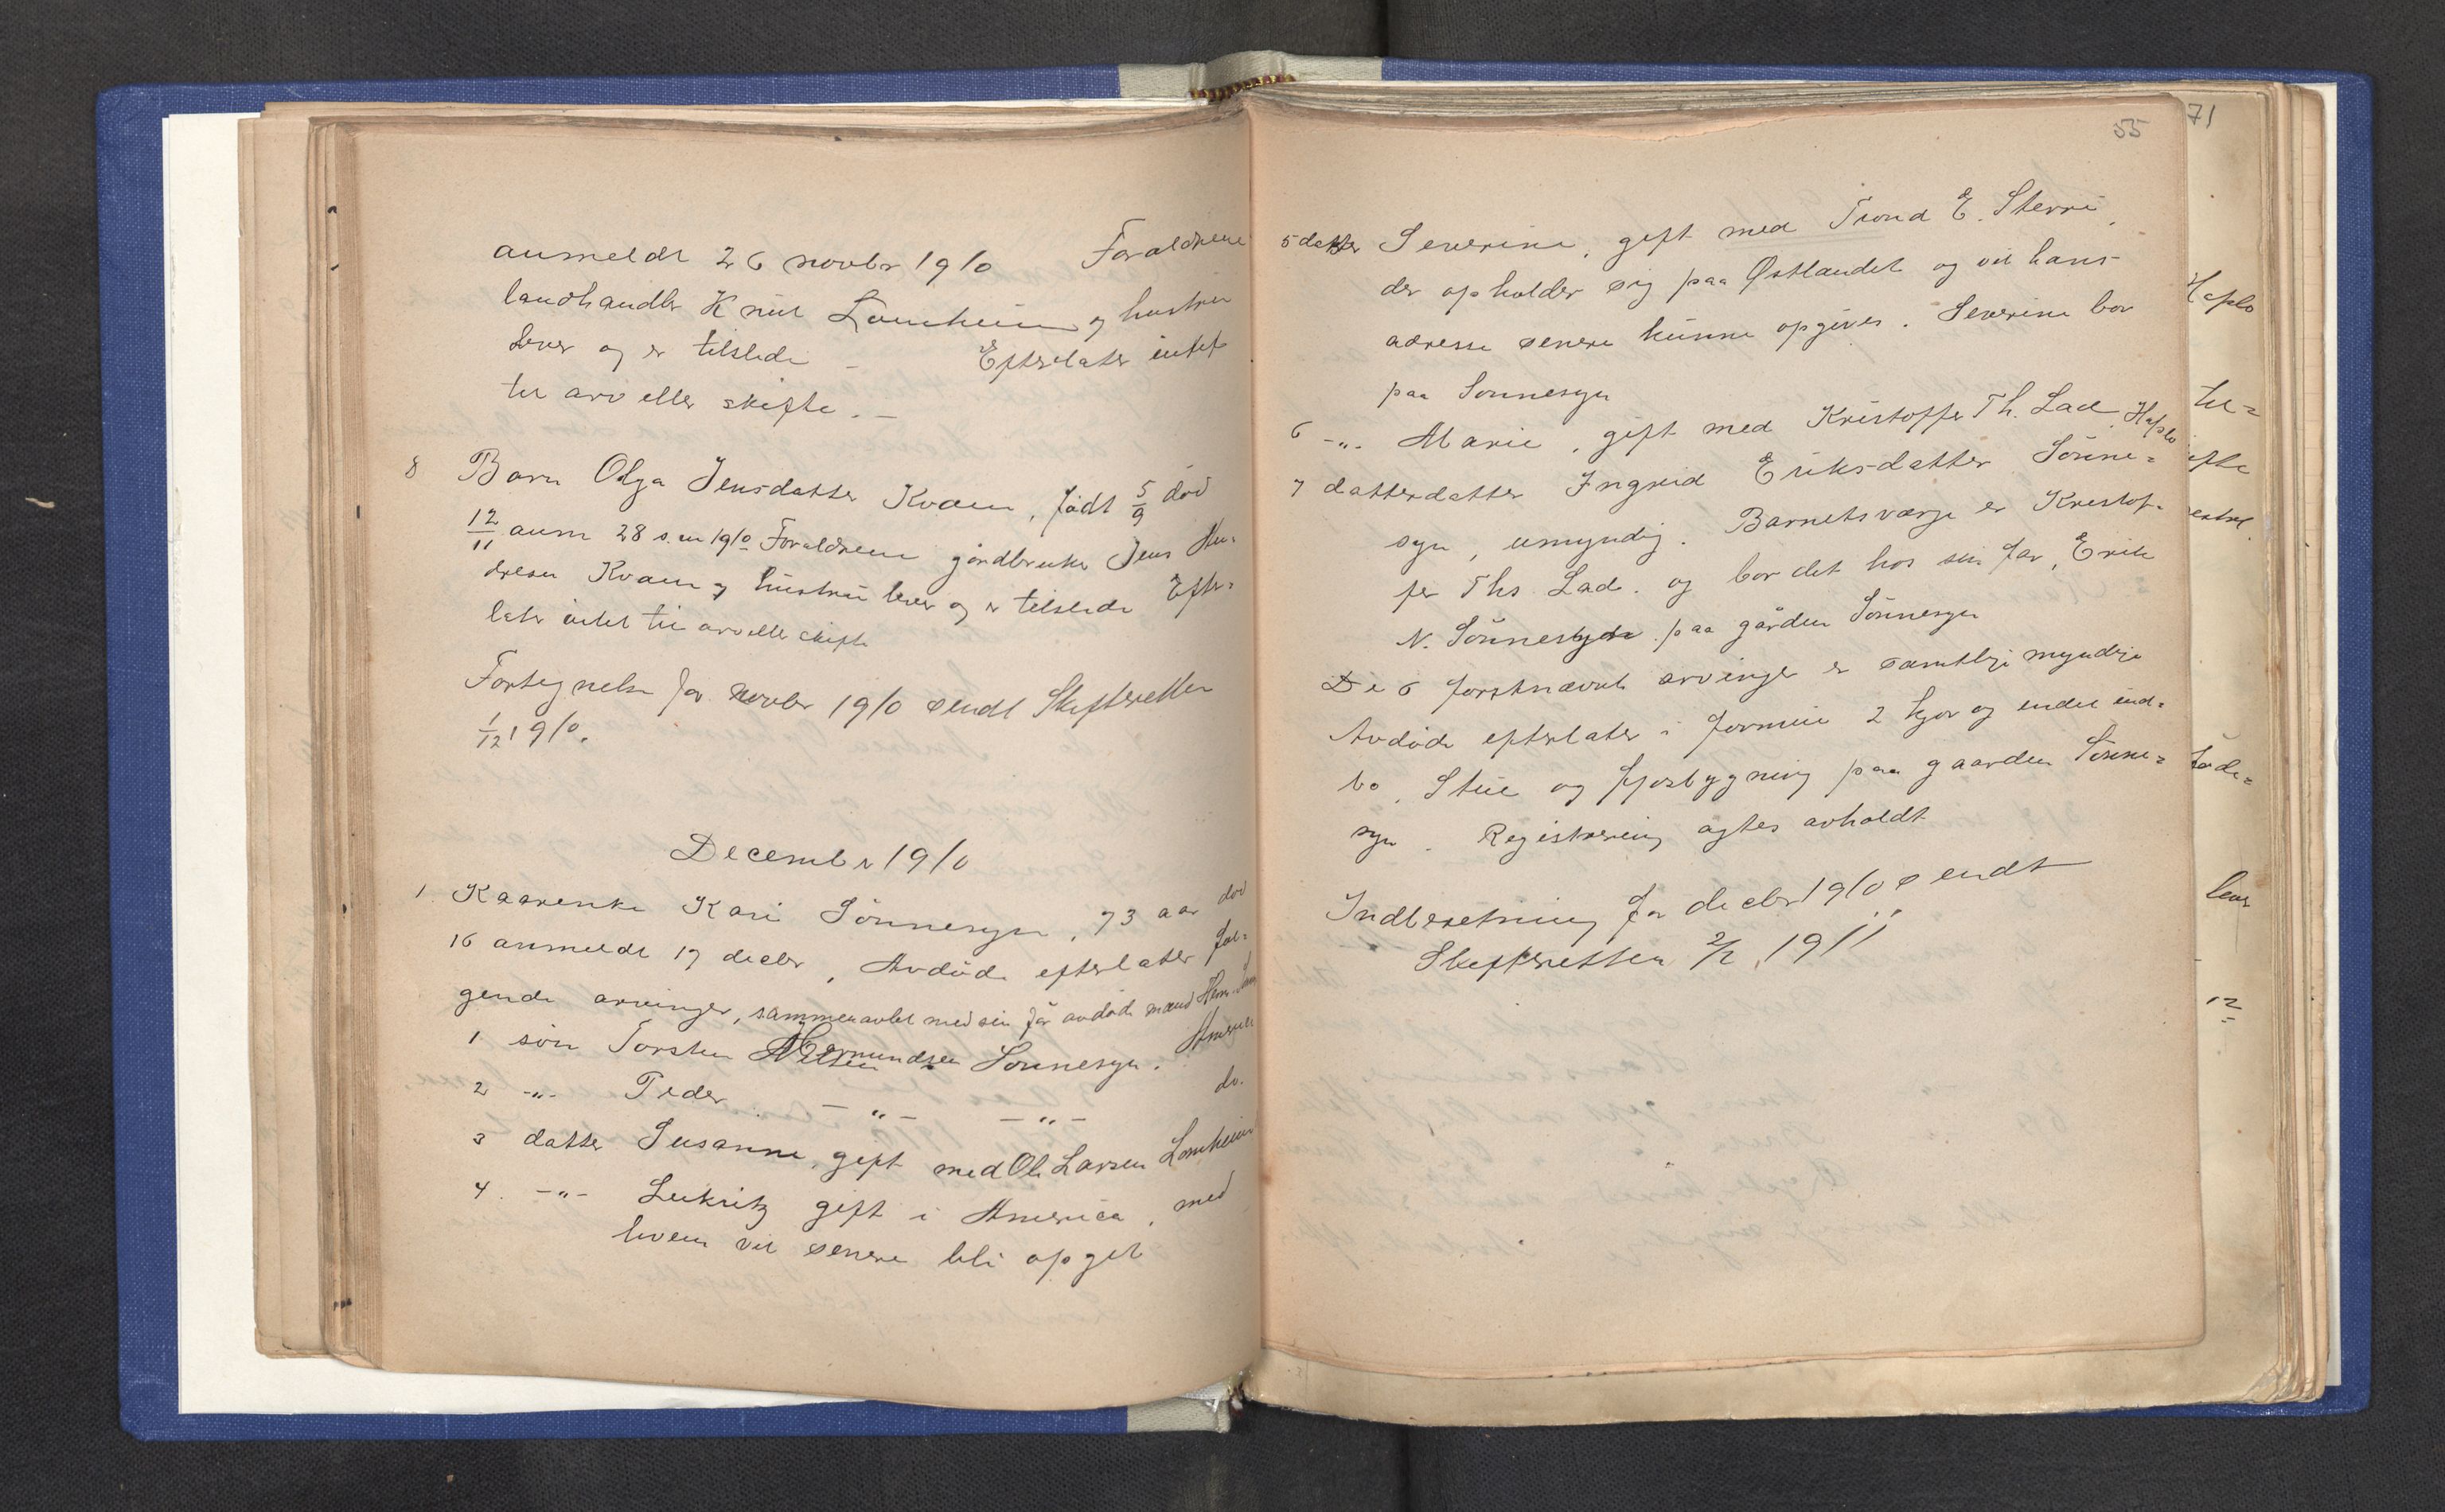 anmeldt 26 novbr 1910 Forældrene
landhandler Knut Lomheim og hustru
lever og er tilstede – Efterlater intet
til arv eller skifte. –
8 Barn Olga Jensdatter Kvam, født 5/9 død
12/11 anm 28 s.m 1910 Forældrene gårdbruker Jens An-
dresen Kvam og hustru lever og er tilstede Efter-
later intet til arv eller skifte
Fortegnelse for novbr 1910 sendt Skifteretten
1/12 1910.
December 1910
1 Kaarenke Kari Sönnesyn, 73 aar död
16 anmeldt 17 decbr, Avdöde efterlater föl-
gende arvinger, sammenavlet med sin för avdöde mand Herm.
1 sön Torsten Hermundsen Sönnesyn. Amerika
2 -"- Peder -"- -"- do.
3 datter Susanne, gift med Ole Larsen Lomheim
4. -"- Lukritz gift i America, med
hvem vil senere bli opget
55
5 datter Severine, gift med Trond E. Sterri,
der opholder sig paa Østlandet og vil hans
adresse senere kunne opgives. Severine bor
paa Sönnesyn
6 -"- Marie, gift med Kristoffer Th. Lad, Hafslo
7 datterdatter Ingrid Eriksdatter Sönne=
syn, umyndig. Barnets værge er Kristof-
fer Ths. Lad. og bor det hos sin far, Erik
N. Sönnesyn paa gården Sönnesyn
De 6 förstnævnte arvinger er samtlige myndige
Avdöde efterlater i formue 2 kjör og endel ind=
bo, Stue og fjösbygning paa gaarden Sönne=
syn. Registrering agtes avholdt
Indberetning for decbr 1910 sendt
Skifteretten 2/1 1911
71
Hafslo
til=
ifte
lever
12